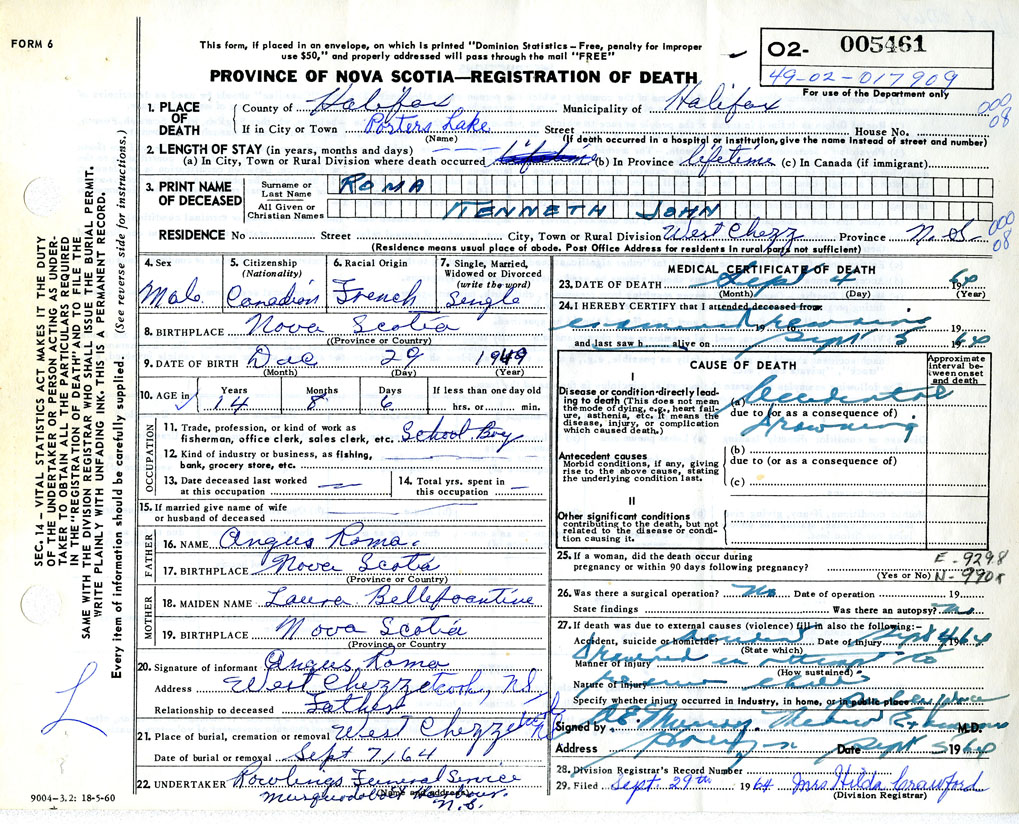 FORM 6
This form, if placed in an envelope, on which is printed "Dominion Statistics—Free, penalty for improper
use $50," and properly addressed will pass through the mail "FREE"
O2- 005461
49-02-017909
For use of the Department only
PROVINCE OF NOVA SCOTIA—REGISTRATION OF DEATH
000
08
1. PLACE OF DEATH { County of Halifax Municipality of Halifax
If in City or Town Porters Lake Street House No.
(Name) (If death occurred in a hospital or institution, give the name instead of street and number)
2. LENGTH OF STAY (in years, months and days)
(a) In City, Town or Rural Division where death occurred lifetime (b) In Province lifetime (c) In Canada (if immigrant)
3. PRINT NAME OF DECEASED { Surname or Last Name ROMA
All Given or Christian Names KENNETH JOHN
RESIDENCE No Street City, Town or Rural Division West Chezz Province N.S.
000
08
(Residence means usual place of abode. Post Office Address for residents in rural parts not sufficient)
4. Sex Male
5. Citizenship (Nationality) Canadian
6. Racial Origin French
7. Single, Married, Widowed or Divorced (write the word) Single
8. BIRTHPLACE Nova Scotia
((Province or Country)
9. DATE OF BIRTH Dec 29 1949
(Month) (Day) (Year)
10. AGE in Years 14 Months 8 Days 6 If less than one day old hrs. or min.
OCCUPATION
11. Trade, profession, or kind of work as
fisherman, office clerk, sales clerk, etc. School Boy
12. Kind of industry or business, as fishing,
bank, grocery store, etc.
13. Date deceased last worked at this occupation
14. Total yrs. spent in this occupation
15. If married give name of wife
or husband of deceased
FATHER
16. NAME Angus Roma.
17. BIRTHPLACE Nova Scotia
(Province or Country)
MOTHER
18. MAIDEN NAME Laura Bellefoantine
19. BIRTHPLACE Nova Scotia
(Province or Country)
20. Signature of informant Angus Roma
Address West Chezzetcook, N.S.
Relationship to deceased Father
21. Place of burial, cremation or removal West Chezzetcook NS
Date of burial or removal Sept 7/64
22. UNDERTAKER Rowlings Funeral Service
(Name and address)
Musquodoboit Harbour. N.S.
9004—3.2: 18-5-60
MEDICAL CERTIFICATE OF DEATH
23. DATE OF DEATH Sept 4 1964
(Month) (Day) (Year)
24. I HEREBY CERTIFY that I attended deceased from
examined drowning 19 to 19
and last saw h alive on Sept 5 1964
CAUSE OF DEATH
Approximate interval between onset and death
I
Disease or condition directly leading to death (This does not mean the mode of dying, e.g., heart failure, asthenia, etc. It means the disease, injury, or complication which caused death.)
(a) Accidental
due to (or as a consequence of)
Drowning
Antecedent causes
Morbid conditions, if any, giving rise to the above cause, stating the underlying condition last.
(b)
due to (or as a consequence of)
(c)
II
Other significant conditions
contributing to the death, but not related to the disease or condition causing it.
25. If a woman, did the death occur during
pregnancy or within 90 days following pregnancy?
(Yes or No)
E-9298
N-990x
26. Was there a surgical operation? No Date of operation 19
State findings Was there an autopsy? No
27. If death was due to external causes (violence) fill in also the following:-
Accident, suicide or homicide? Accident Date of injury Sept 4 1964
(State which)
Manner of injury Drowned in attempt to
(How sustained)
Nature of injury
Specify whether injury occurred in industry, in home, or in public place
Signed by Medical Examiner M.D.
Address Date Sept 5 1964
28. Division Registrar's Record Number
29. Filed Sept. 29th 1964 Mrs Hilda Crawford
(Division Registrar)
SEC. 14—VITAL STATISTICS ACT MAKES IT THE DUTY
OF THE UNDERTAKER OR PERSON ACTING AS UNDER-
TAKER TO OBTAIN ALL THE PARTICULARS REQUIRED
IN THE "REGISTRATION OF DEATH" AND TO FILE THE
SAME WITH THE DIVISION REGISTRAR WHO SHALL ISSUE THE BURIAL PERMIT.
WRITE PLAINLY WITH UNFADING INK. THIS IS A PERMANENT RECORD.
Every item of information should be carefully supplied. (See reverse side for instructions.)